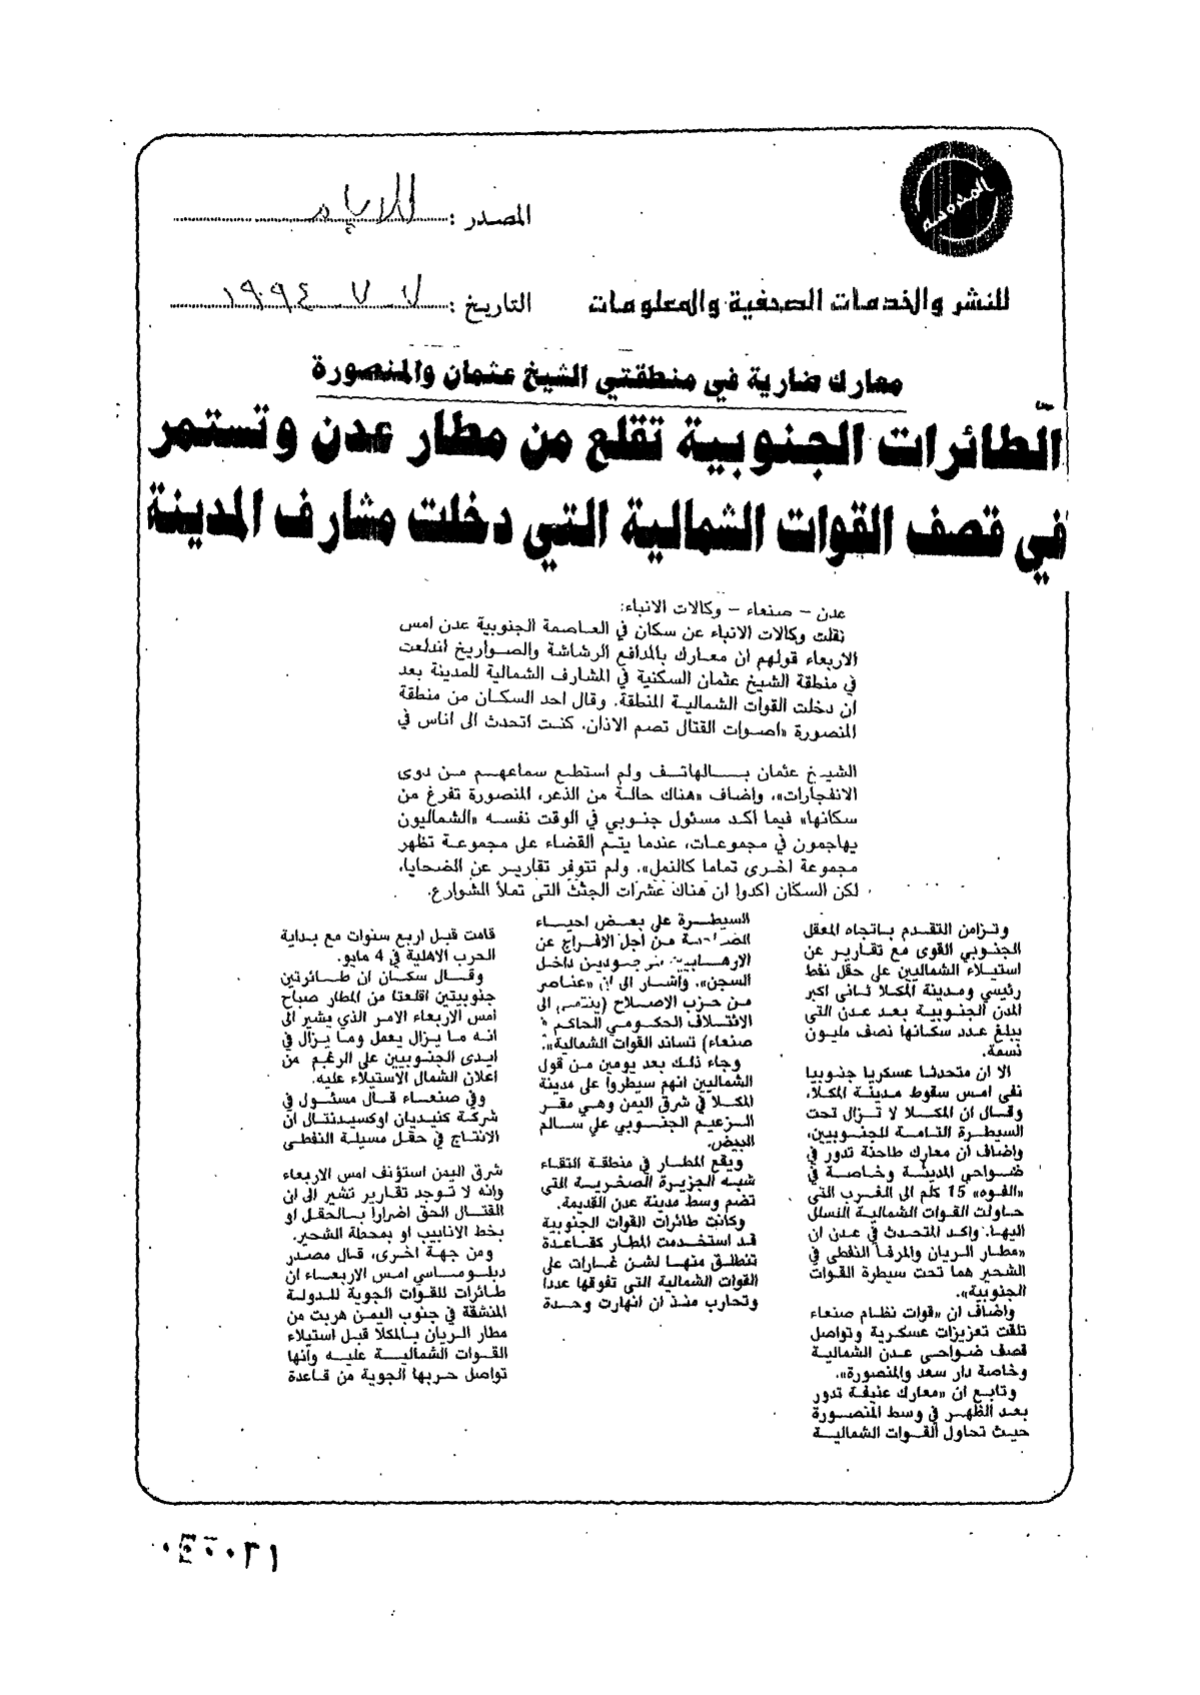 المحروسة
المصدر : الأيام
للنشر والخدمات الصحفية والمعلومات
التاريخ : ٧ ٧ ١٩٩٤
معارك ضارية في منطقتي الشيخ عثمان والمنصورة
الطائرات الجنوبية تقلع من مطار عدن وتستمر
في قصف القوات الشمالية التي دخلت مشارف المدينة
عدن – صنعاء – وكالات الانباء:
نقلت وكالات الانباء عن سكان في العاصمة الجنوبية عدن امس
الاربعاء قولهم ان معارك بالمدافع الرشاشة والصواريخ اندلعت
في منطقة الشيخ عثمان السكنية في المشارف الشمالية للمدينة بعد
ان دخلت القوات الشمالية المنطقة. وقال احد السكان من منطقة
المنصورة «اصوات القتال تصم الاذان. كنت اتحدث الى اناس في
الشيخ عثمان بالهاتف ولم استطع سماعهم من دوى
الانفجارات»، واضاف «هناك حالة من الذعر، المنصورة تفرغ من
سكانها» فيما اكد مسئول جنوبي في الوقت نفسه «الشماليون
يهاجمون في مجموعات، عندما يتم القضاء على مجموعة تظهر
مجموعة اخرى تماما كالنمل». ولم تتوفر تقارير عن الضحايا،
لكن السكان اكدوا ان هناك عشرات الجثث التى تملأ الشوارع.
وتزامن التقدم باتجاه المعقل
الجنوبي القوى مع تقارير عن
استيلاء الشماليين على حقل نفط
رئيسي ومدينة المكلا ثانى اكبر
المدن الجنوبية بعد عدن التى
يبلغ عدد سكانها نصف مليون
نسمة.
الا ان متحدثا عسكريا جنوبيا
نفى امس سقوط مدينة المكلا،
وقال ان المكلا لا تزال تحت
السيطرة التامة للجنوبيين،
واضاف ان معارك طاحنة تدور في
ضواحي المدينة وخاصة في
«الفوه» 15 كلم الى الغرب التى
حاولت القوات الشمالية التسلل
اليها. واكد المتحدث في عدن ان
«مطار الريان والمرفأ النفطى في
الشحير هما تحت سيطرة القوات
الجنوبية».
واضاف ان «قوات نظام صنعاء
تلقت تعزيزات عسكرية وتواصل
قصف ضواحى عدن الشمالية
وخاصة دار سعد والمنصورة».
وتابع ان «معارك عنيفة تدور
بعد الظهر في وسط المنصورة
حيث تحاول القوات الشمالية
السيطرة على بعض احياء
من أجل الافراج عن
داخل
السجن». واشار الى ان «عناصر
من حزب الاصلاح (ينتمى الى
الائتلاف الحكومي الحاكم في
صنعاء) تساند القوات الشمالية».
وجاء ذلك بعد يومين من قول
الشماليين انهم سيطروا على مدينة
المكلا في شرق اليمن وهي مقر
الزعيم الجنوبي علي سالم
البيض.
ويقع المطار في منطقة التقاء
شبه الجزيرة الصخرية التى
تضم وسط مدينة عدن القديمة.
وكانت طائرات القوات الجنوبية
قد استخدمت المطار كقاعدة
تنطلق منها لشن غارات على
القوات الشمالية التى تفوقها عددا
وتحارب منذ ان انهارت وحدة
قامت قبل اربع سنوات مع بداية
الحرب الاهلية في 4 مايو.
وقال سكان ان طائرتين
جنوبيتين اقلعتا من المطار صباح
امس الاربعاء الامر الذي يشير الى
انه ما يزال يعمل وما يزال في
ايدى الجنوبيين على الرغم من
اعلان الشمال الاستيلاء عليه.
وفي صنعاء قال مسئول في
شركة كنيديان اوكسيدنتال ان
الانتاج في حقل مسيلة النفطى
شرق اليمن استؤنف امس الاربعاء
وانه لا توجد تقارير تشير الى ان
القتال الحق اضرارا بالحقل او
بخط الانابيب او بمحطة الشحير.
ومن جهة اخرى، قال مصدر
دبلوماسي امس الاربعاء ان
طائرات للقوات الجوية للدولة
المنشقة في جنوب اليمن هربت من
مطار الريان بالمكلا قبل استيلاء
القوات الشمالية عليه وانها
تواصل حربها الجوية من قاعدة